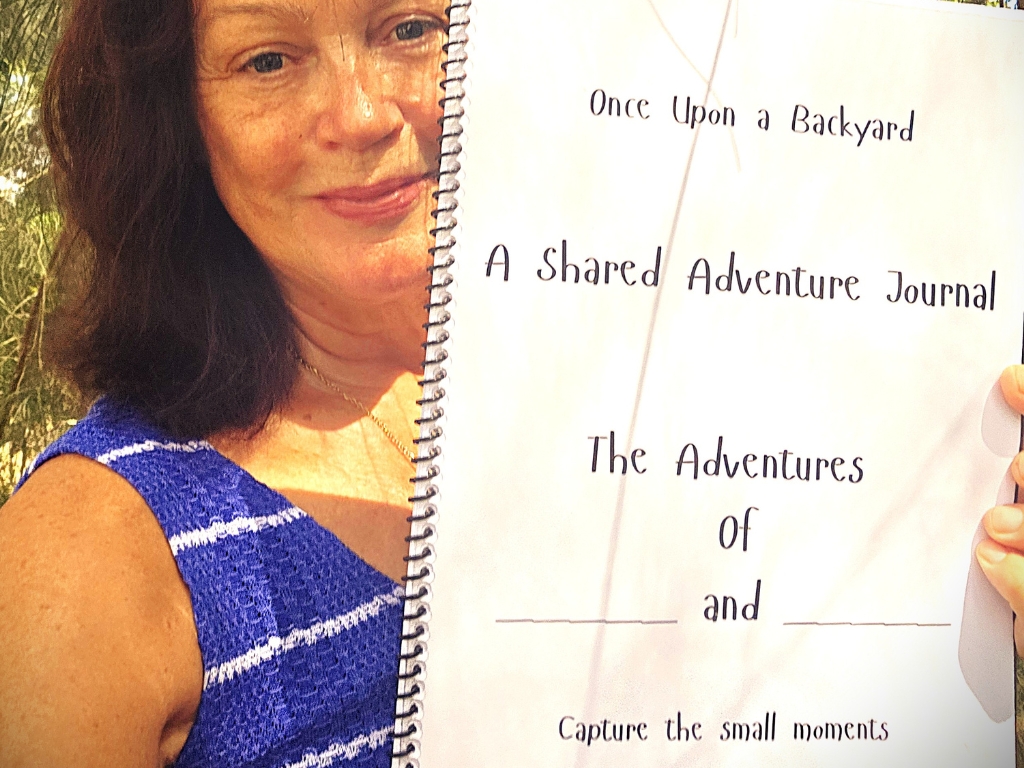 Once Upon a Backyard
A Shared Adventure Journal
The Adventures
of
__________ and __________
Capture the small moments